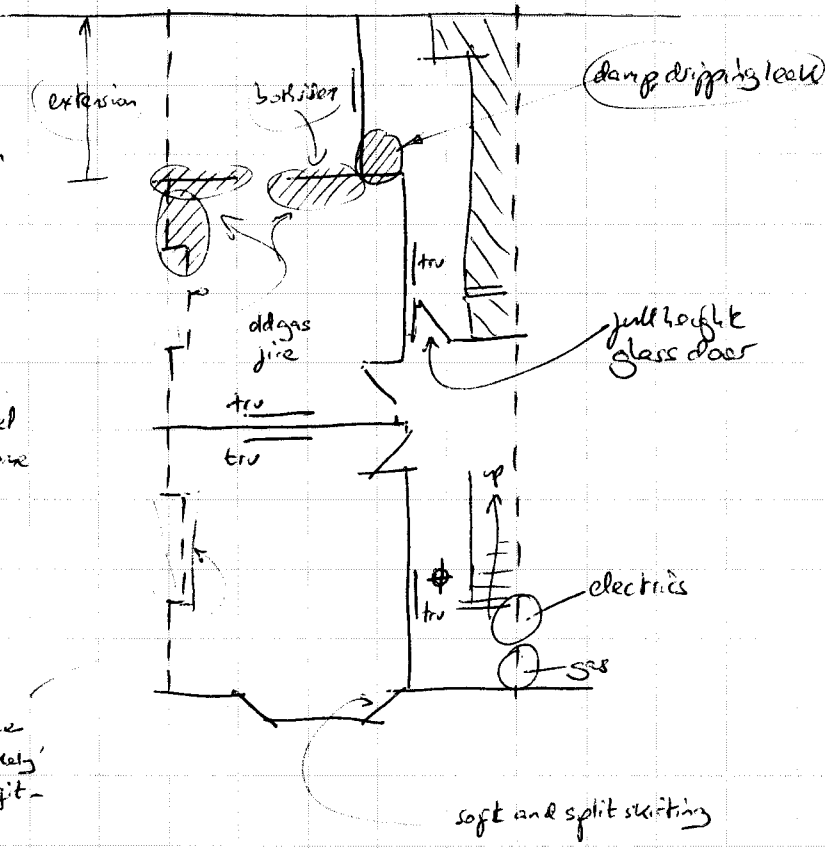 extension
both sides
damp, dripping leak
trv
old gas
fire
full height
glass door
trv
trv
up
trv
electrics
gas
soft and split skirting